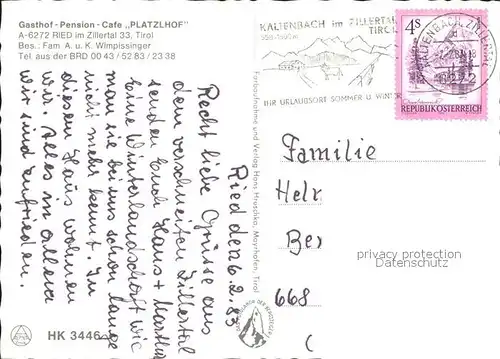 Gasthof - Pension - Cafe „PLATZLHOF"
A-6272 RIED im Zillertal 33, Tirol
Bes.: Fam A. u. K. Wimpissinger
Tel aus der BRD 00 43 / 52 83 / 23 38
Ried den 6.2.83
Recht liebe Grüsse aus
dem verschneiten Zillertal
senden Euch Hans + Martha
Eine Winterlandschaft wie
man sie bei uns schon lange
nicht mehr kennt. In
diesem Haus wohnen
wir. Alles in allem
wir sind zufrieden.
HK 3446
Farbaufnahme und Verlag Hans Hruschka, Mayrhofen, Tirol
KALTENBACH im ZILLERTAL
TIROL
IHR URLAUBSORT SOMMER U. WINTER
KALTENBACH, ZILLERTAL
4S
REPUBLIK ÖSTERREICH
Familie
Helr
Ber
668
privacy protection
Datenschutz